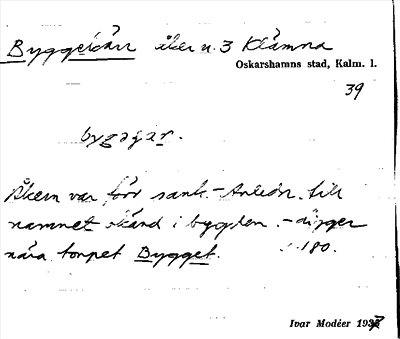 Byggekärr åker n. 3 Klämna
Oskarshamns stad, Kalm. l.
39
byggar.
Åkern var förr sank. - Anledn. till
namnet okänd i bygden. - ligger
nära torpet Bygget. 180.
Ivar Modéer 1937